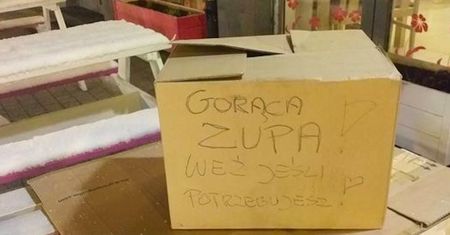 GORĄCA
ZUPA!
WEŹ JEŚLI
POTRZEBUJESZ!